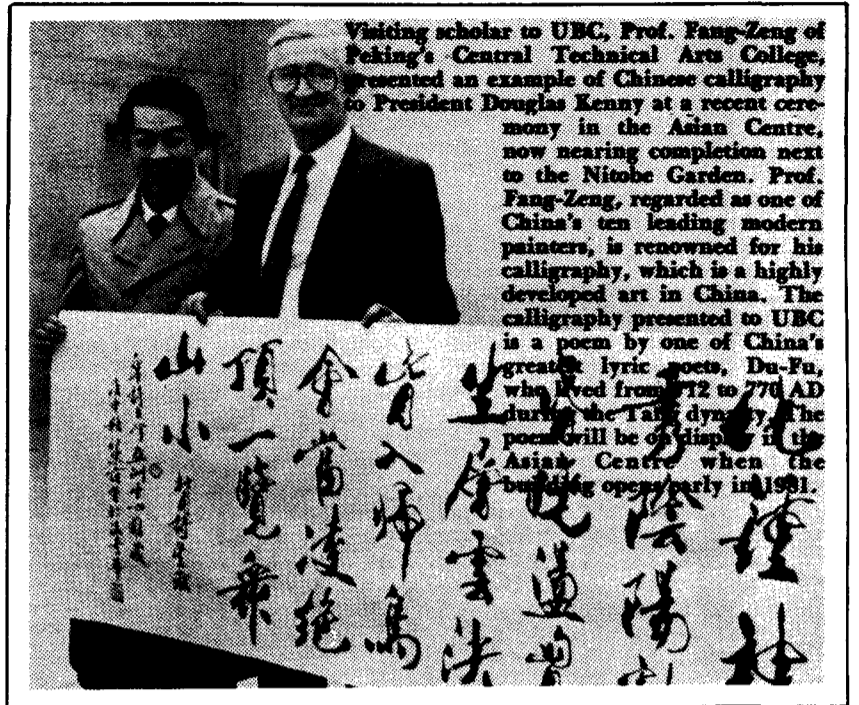 Visiting scholar to UBC, Prof. Fang-Zeng of
Peking's Central Technical Arts College,
presented an example of Chinese calligraphy
to President Douglas Kenny at a recent cere-
mony in the Asian Centre,
now nearing completion next
to the Nitobe Garden. Prof.
Fang-Zeng, regarded as one of
China's ten leading modern
painters, is renowned for his
calligraphy, which is a highly
developed art in China. The
calligraphy presented to UBC
is a poem by one of China's
greatest lyric poets, Du-Fu,
who lived from 712 to 770 AD
during the Tang dynasty. The
poem will be on display in the
Asian Centre when the
building opens early in 1981.
化鍾神
秀陰陽
曉盪胸
生層雲決
眥入歸鳥
會當凌絕
頂一覽衆
山小